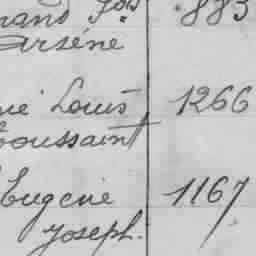 Jos 883
Arsène
Louis 1266
Toussaint
Eugène 1167
Joseph.